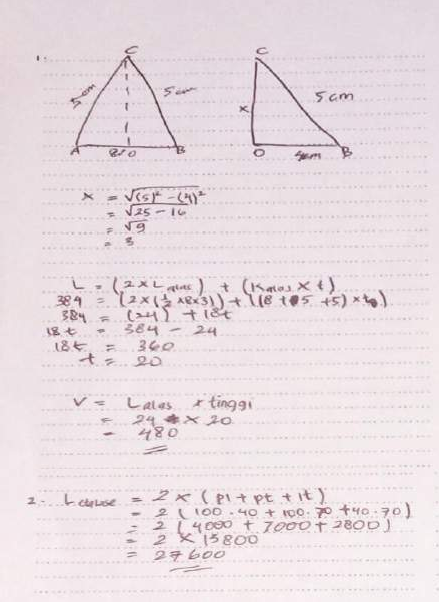 1.
C C
5 cm 5 cm x 5 cm
A 8 D B O 4cm B
x = √(5)² - (4)²
= √25 - 16
= √9
= 3
L = (2 x Lalas) + (Kalas x t)
384 = (2 x (½ x 8 x 3)) + ((8 + 5 + 5) x t)
384 = (24) + 18t
18t = 384 - 24
18t = 360
t = 20
V = Lalas x tinggi
= 24 x 20
= 480
2. = 2 x (pl + pt + lt)
= 2 (100 . 40 + 100 . 70 + 40 . 70)
= 2 (4000 + 7000 + 2800)
= 2 x 13800
= 27600